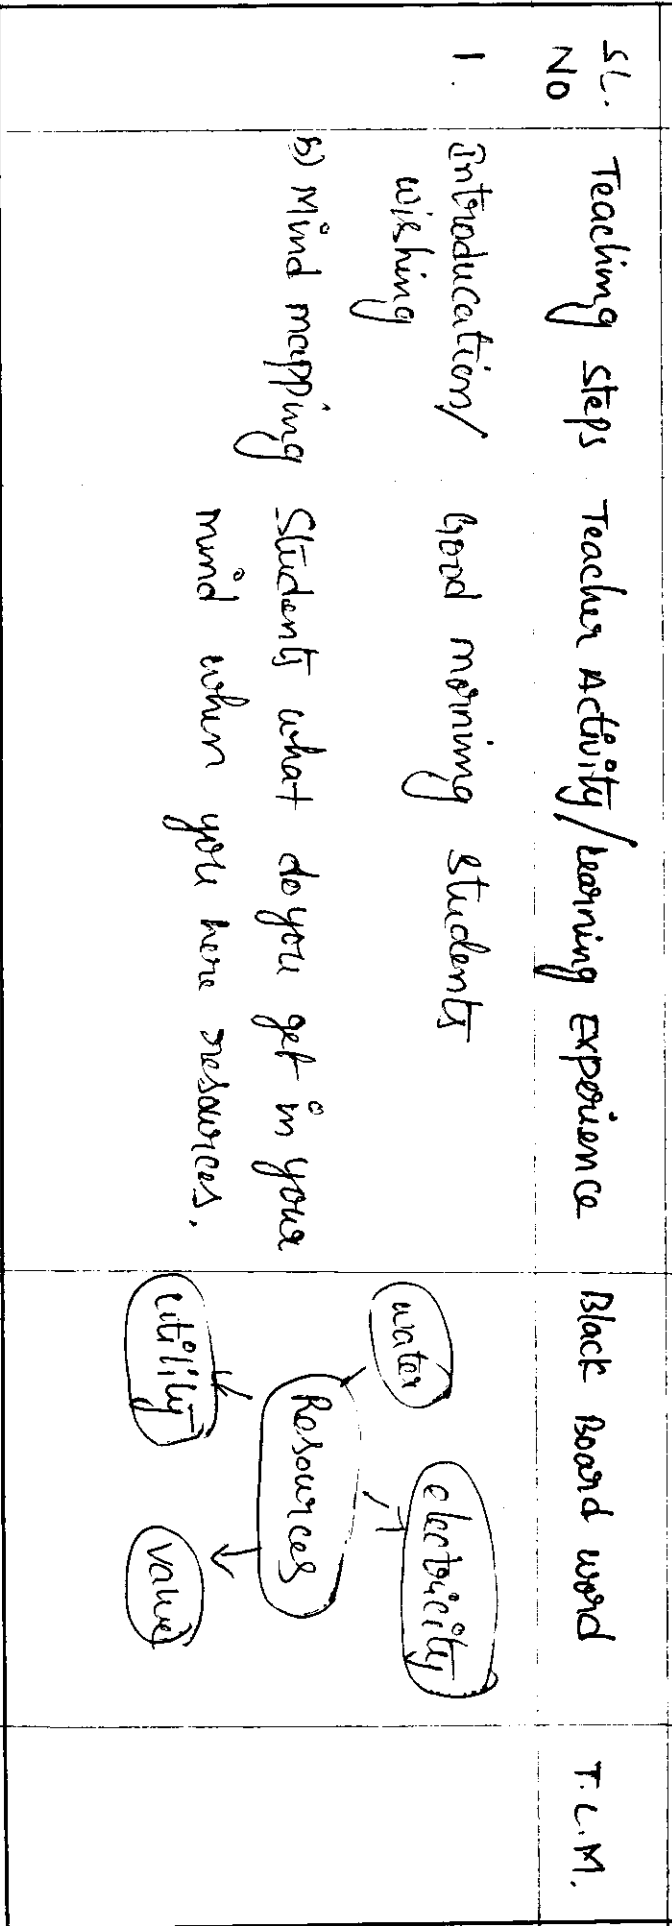 SL. No
Teaching Steps
Teacher Activity/Learning Experience
Black Board word
T.L.M.
1.
Introducation/
wishing
Good morning students
b) Mind mapping
Students what do you get in your
mind when you here resources.
water
electricity
Resources
utility
value